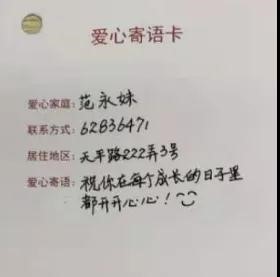 爱心寄语卡
爱心家庭：范永妹
联系方式：62836471
居住地区：天平路222弄3号
爱心寄语：祝你在每个成长的日子里
都开开心心！